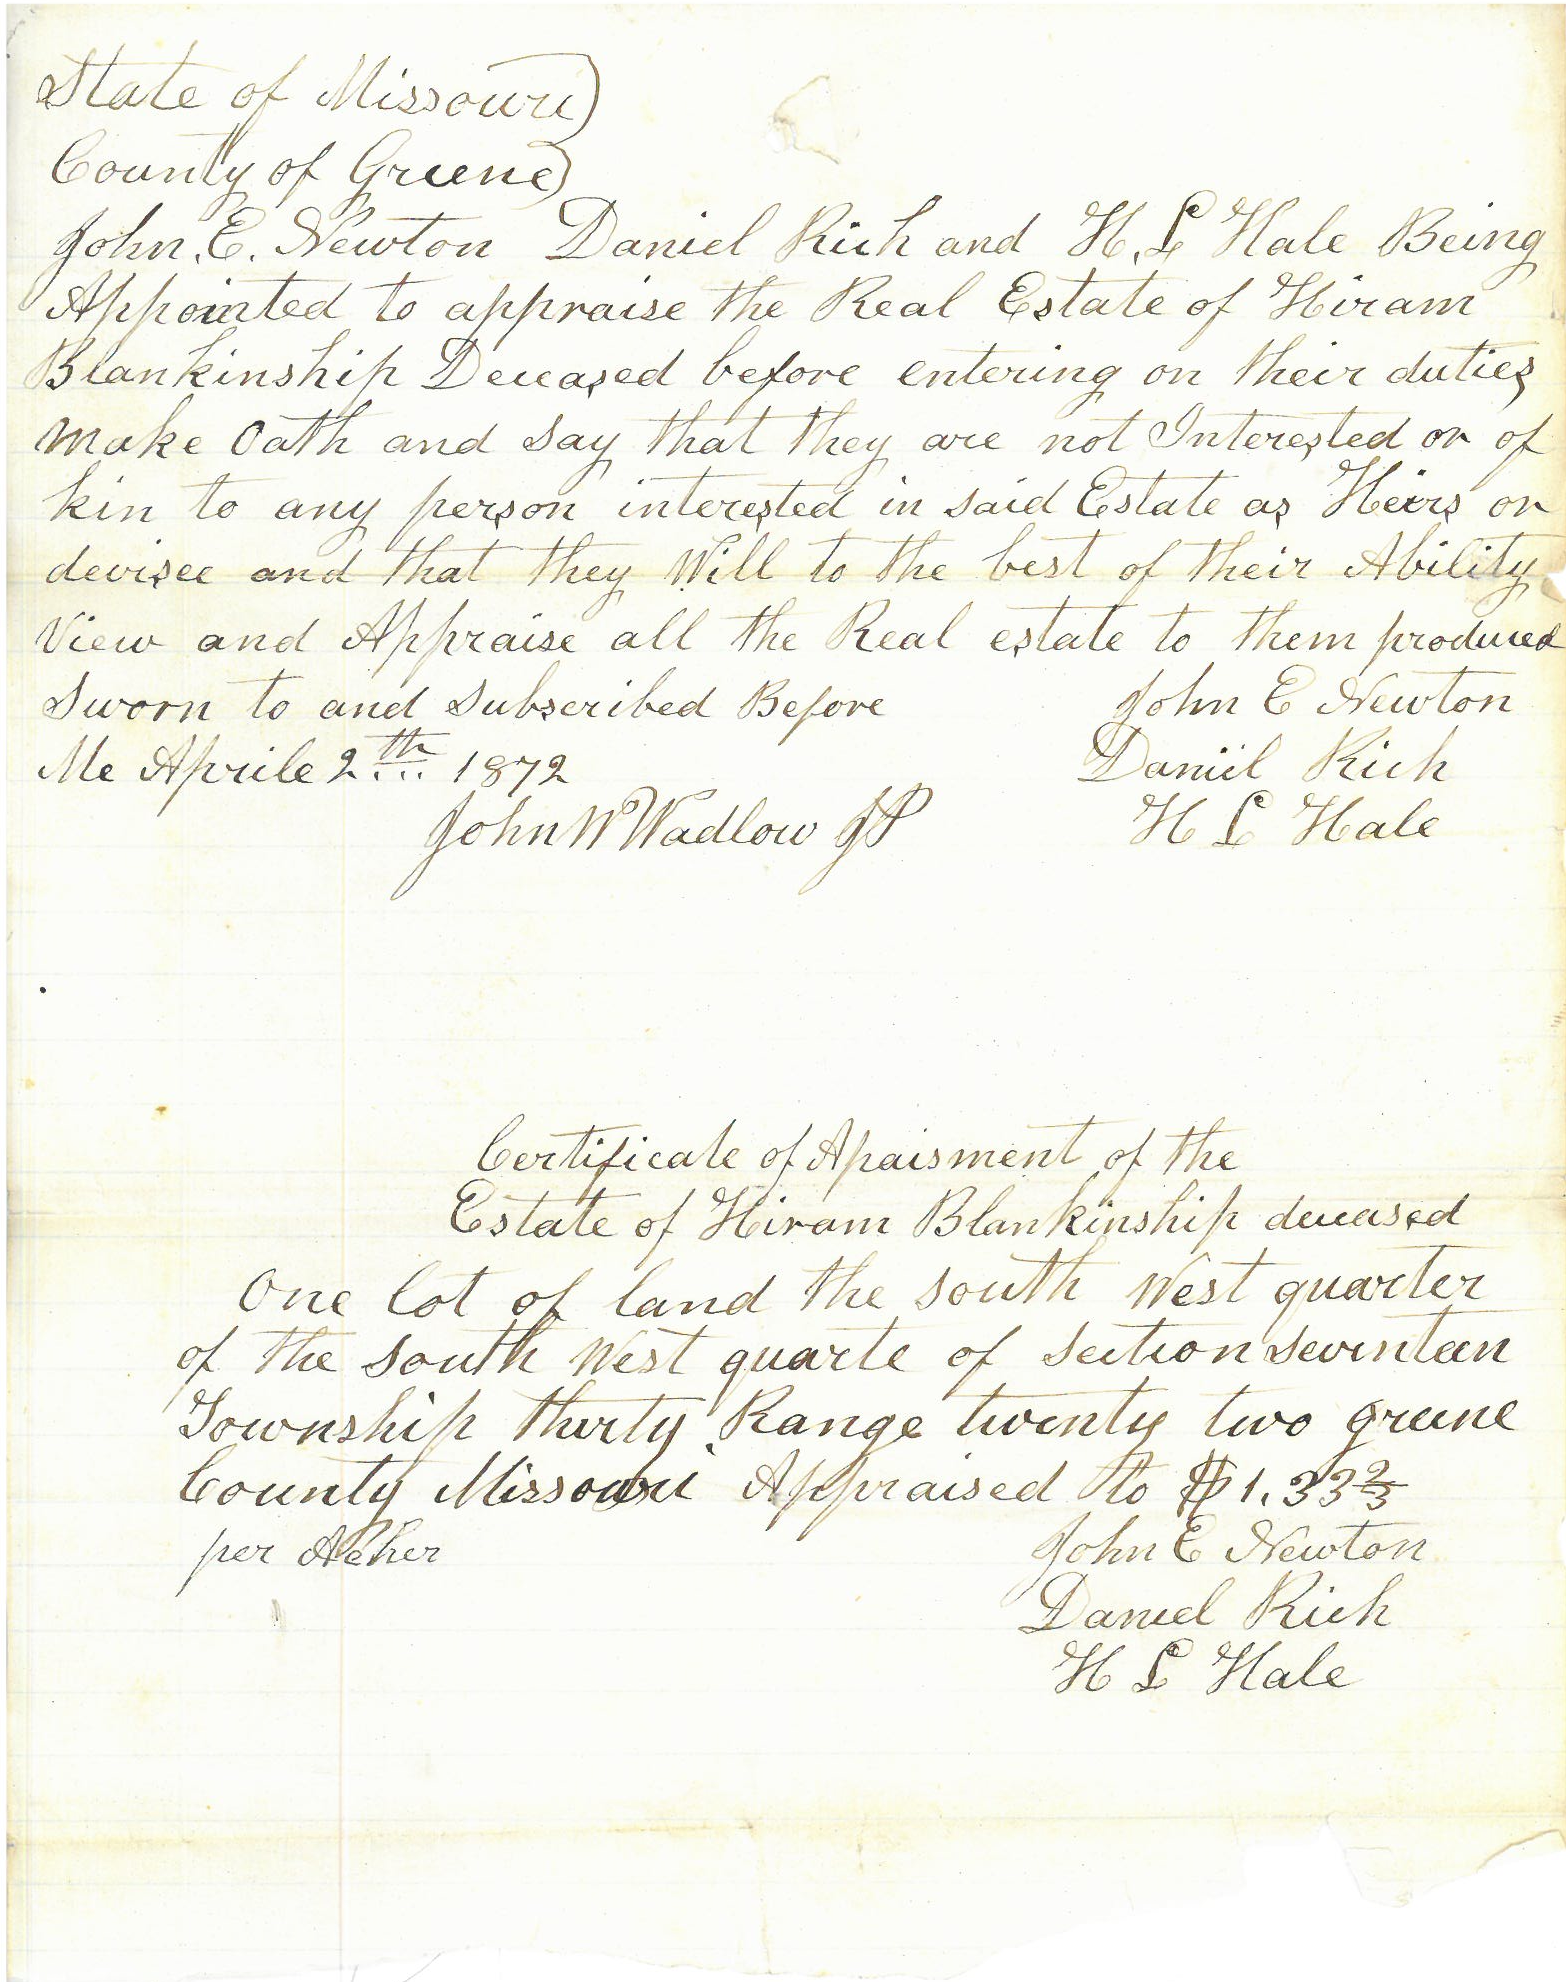 State of Missouri)
County of Greene)
John. E. Newton Daniel Rich and H. L Hale Being
Appointed to appraise the Real Estate of Hiram
Blankinship Deceased before entering on their duties
make Oath and say that they are not Interested or of
kin to any person interested in said Estate as Heirs or
devisee and that they Will to the best of their Ability
View and Appraise all the Real estate to them produced
Sworn to and Subscribed Before
John E Newton
Me Aprile 2th 1872
Daniel Rich
John W Wadlow JP
H L Hale
Certificate of Apaisment of the
Estate of Hiram Blankinship deceased
One lot of land the south West quarter
of the south West quarte of section seventeen
Township thirty Range twenty two greene
County Missouri Appraised to $1.33 2/3
per Acher
John E Newton
Daniel Rich
H L Hale